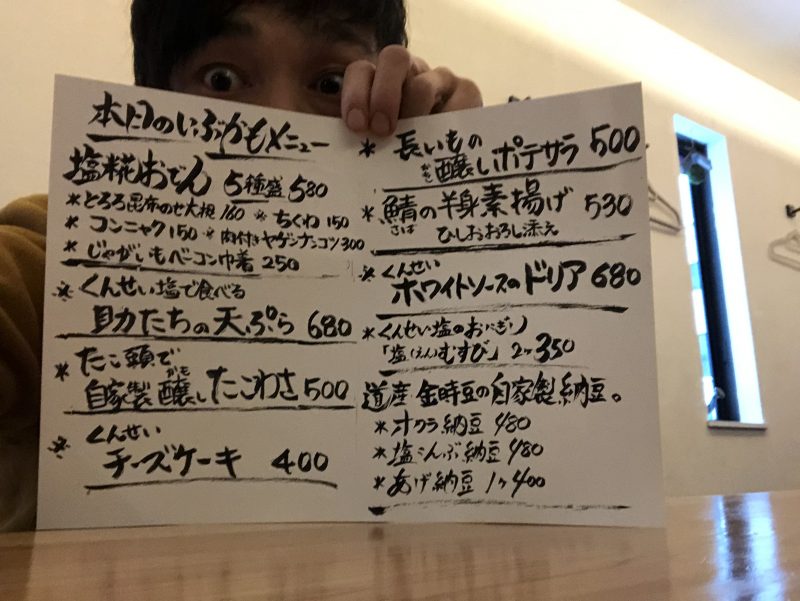 本日のいぶかもメニュー
塩糀おでん 5種盛 580
*とろろ昆布のせ大根 160 *ちくわ 150
*コンニャク 150 *肉付きヤゲンナンコツ 300
*じゃがいもベーコン巾着 250
*くんせい塩で食べる
貝力たちの天ぷら 680
*たこ頭で
かも
自家製醸したこわさ 500
*くんせい
チーズケーキ 400
*長いもの
かも
醸しポテサラ 500
*鯖の半身素揚げ 530
さば ひしおおろし添え
*くんせい
ホワイトソースのドリア 680
*くんせい塩のおにぎり
「塩(えん)むすび」2ヶ 350
道産 金時豆の自家製納豆。
*オクラ納豆 480
*塩こんぶ納豆 480
*あげ納豆 1ヶ 400